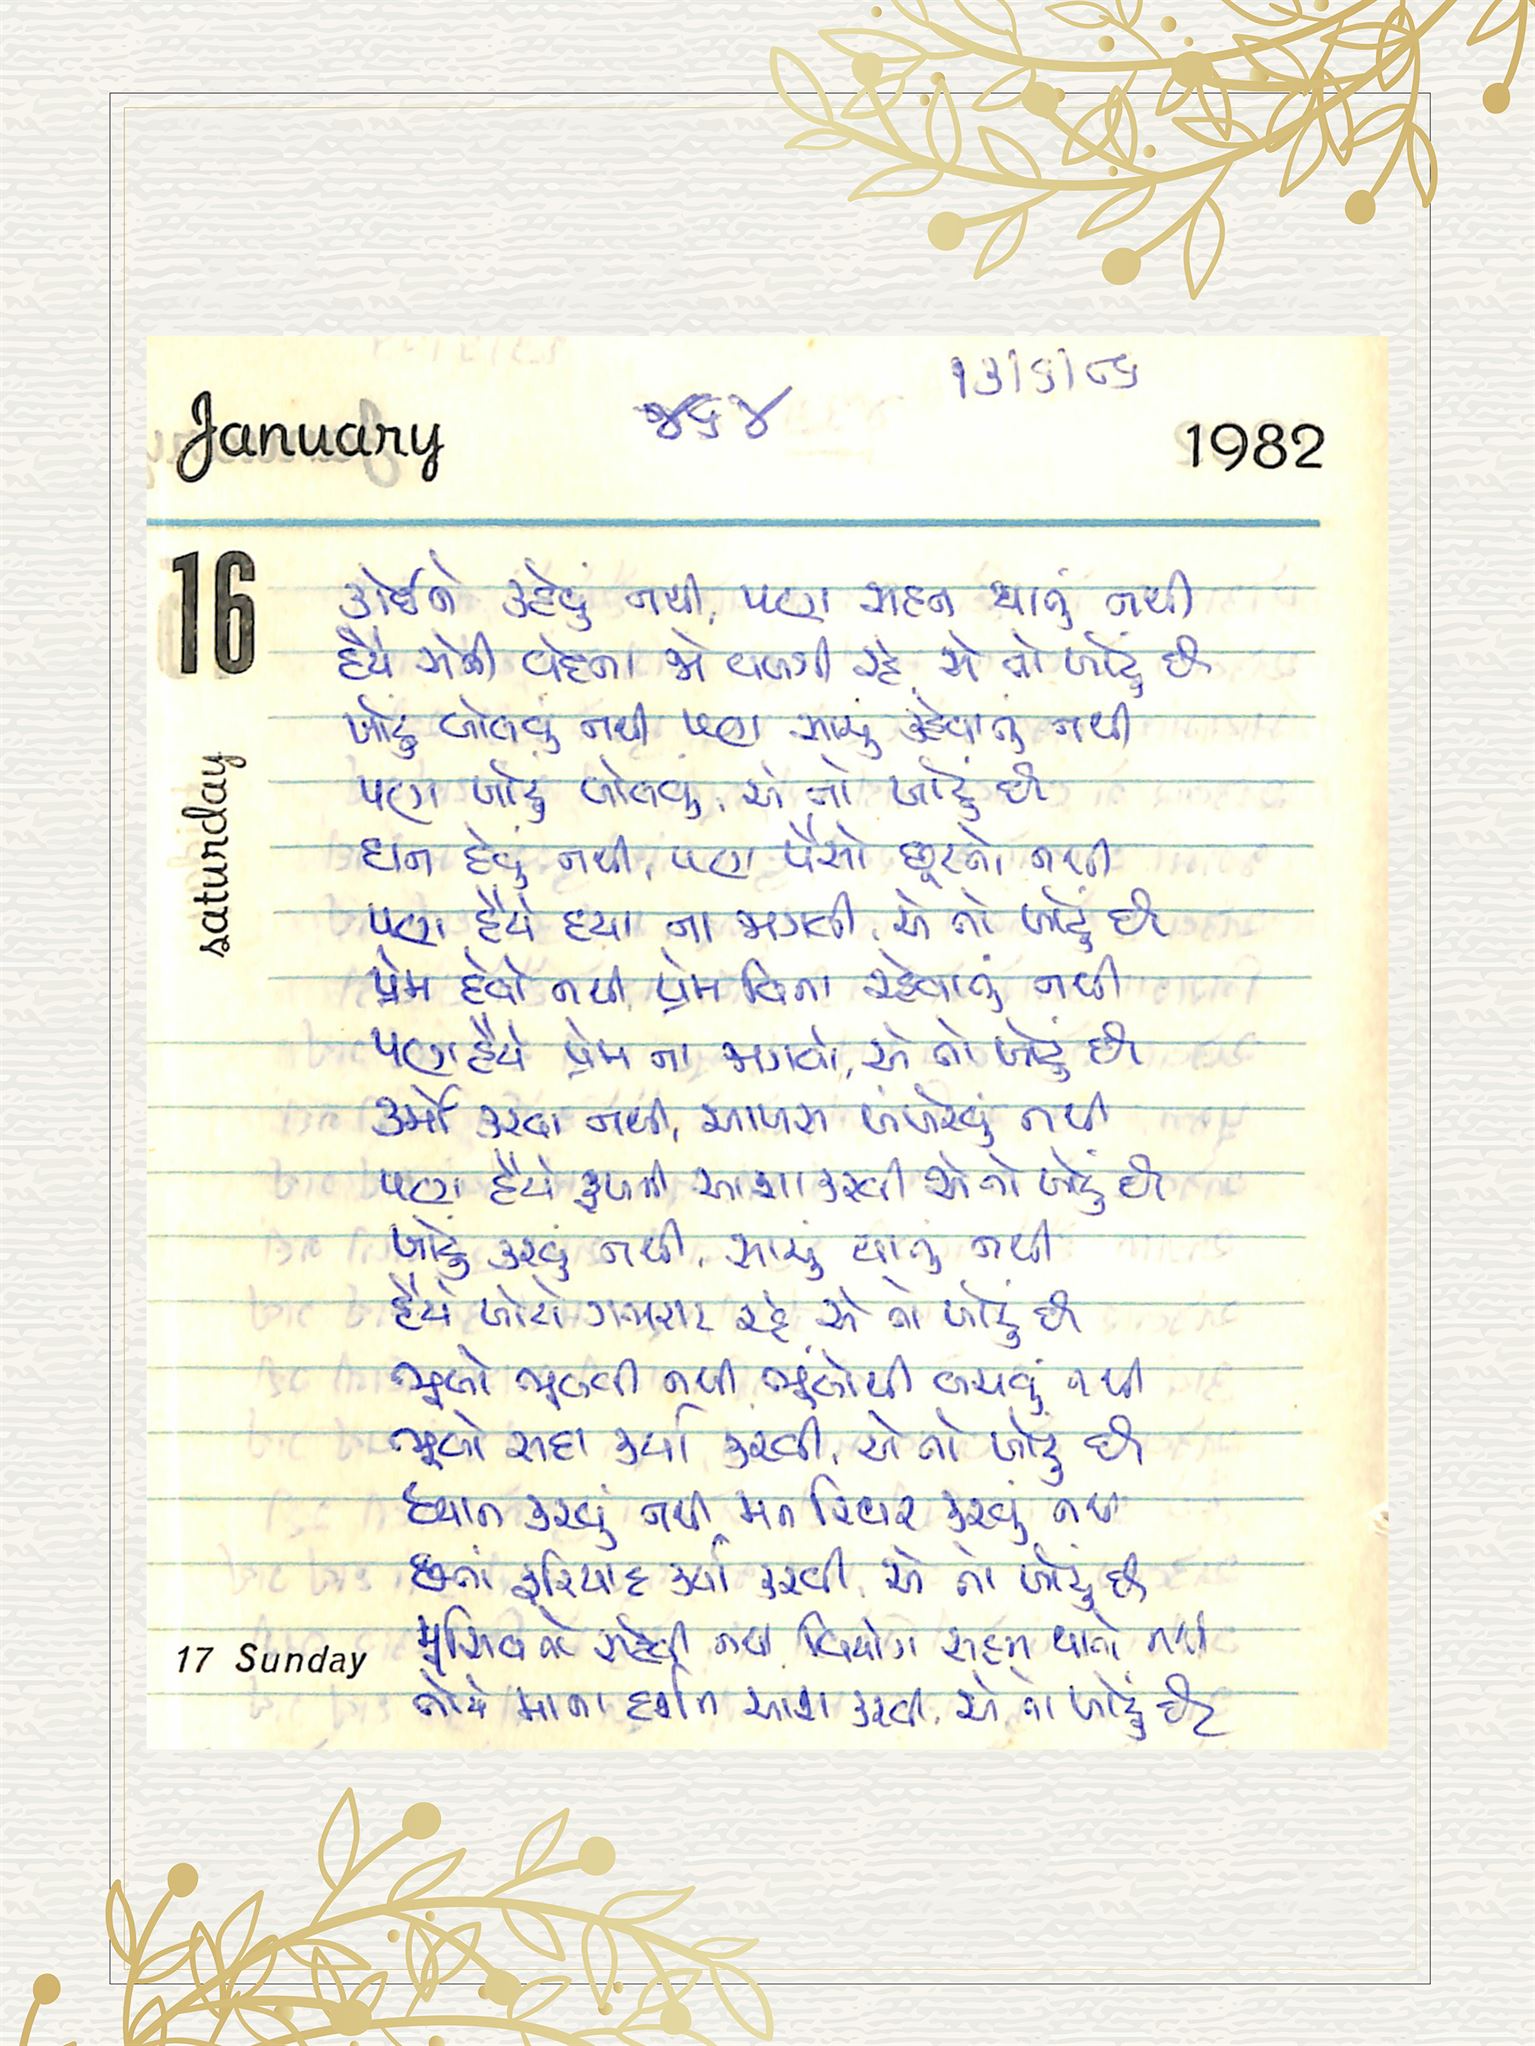 ૧૩/૬/૮૬
January
1982
16
saturday
કોઈને કહેવું નથી, પણ સહન થાતું નથી
હૈયે એની વેદના જો વળગી રહે, એ તો ખોટું છે
ખોટું બોલવું નથી પણ સાચું કહેવાતું નથી
પણ ખોટું બોલવું, એ તો ખોટું છે
દાન દેવું નથી, પણ પૈસો છૂટતો નથી
પણ હૈયે દયા ના જાગવી, એ તો ખોટું છે
પ્રેમ દેવો નથી, પ્રેમ વિના રહેવાતું નથી
પણ હૈયે પ્રેમ ના જાગવો, એ તો ખોટું છે
કર્મો કરવા નથી, આળસ ખંખેરવું નથી
પણ હૈયે ફળની આશા કરવી એ તો ખોટું છે
ખોટું કરવું નથી, સાચું થાતું નથી
હૈયે ખોટો ગભરાટ રહે, એ તો ખોટું છે
ભૂલો ભૂલવી નથી ભૂલોથી બચવું નથી
ભૂલો સદા કર્યા કરવી, એ તો ખોટું છે
ધ્યાન કરવું નથી, મન સ્થિર કરવું નથી
છતાં ફરિયાદ કર્યા કરવી, એ તો ખોટું છે
17 Sunday
મુસીબત સહેવી નથી, વિયોગ સહન થાતો નથી
તોયે માના દર્શન આશ કરવી, એ તો ખોટું છે